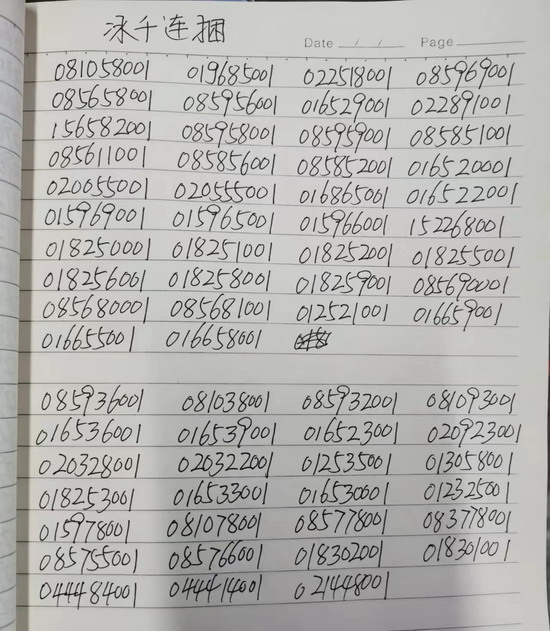 泳千连捆
Date / / Page
081058001 019685001 022518001 085969001
085658001 085956001 016529001 022891001
156582001 085958001 085959001 085851001
085611001 085856001 085852001 016520001
020055001 020555001 016865001 016522001
015969001 015965001 015966001 152268001
018250001 018251001 018252001 018255001
018256001 018258001 018259001 085690001
085680001 085681001 012521001 016659001
016655001 016658001
085936001 081038001 085932001 081093001
016536001 016539001 016523001 020923001
020328001 020322001 012535001 013058001
018253001 016533001 016530001 012325001
015978001 081078001 085778001 083778001
085755001 085766001 018302001 018301001
044484001 044414001 021448001